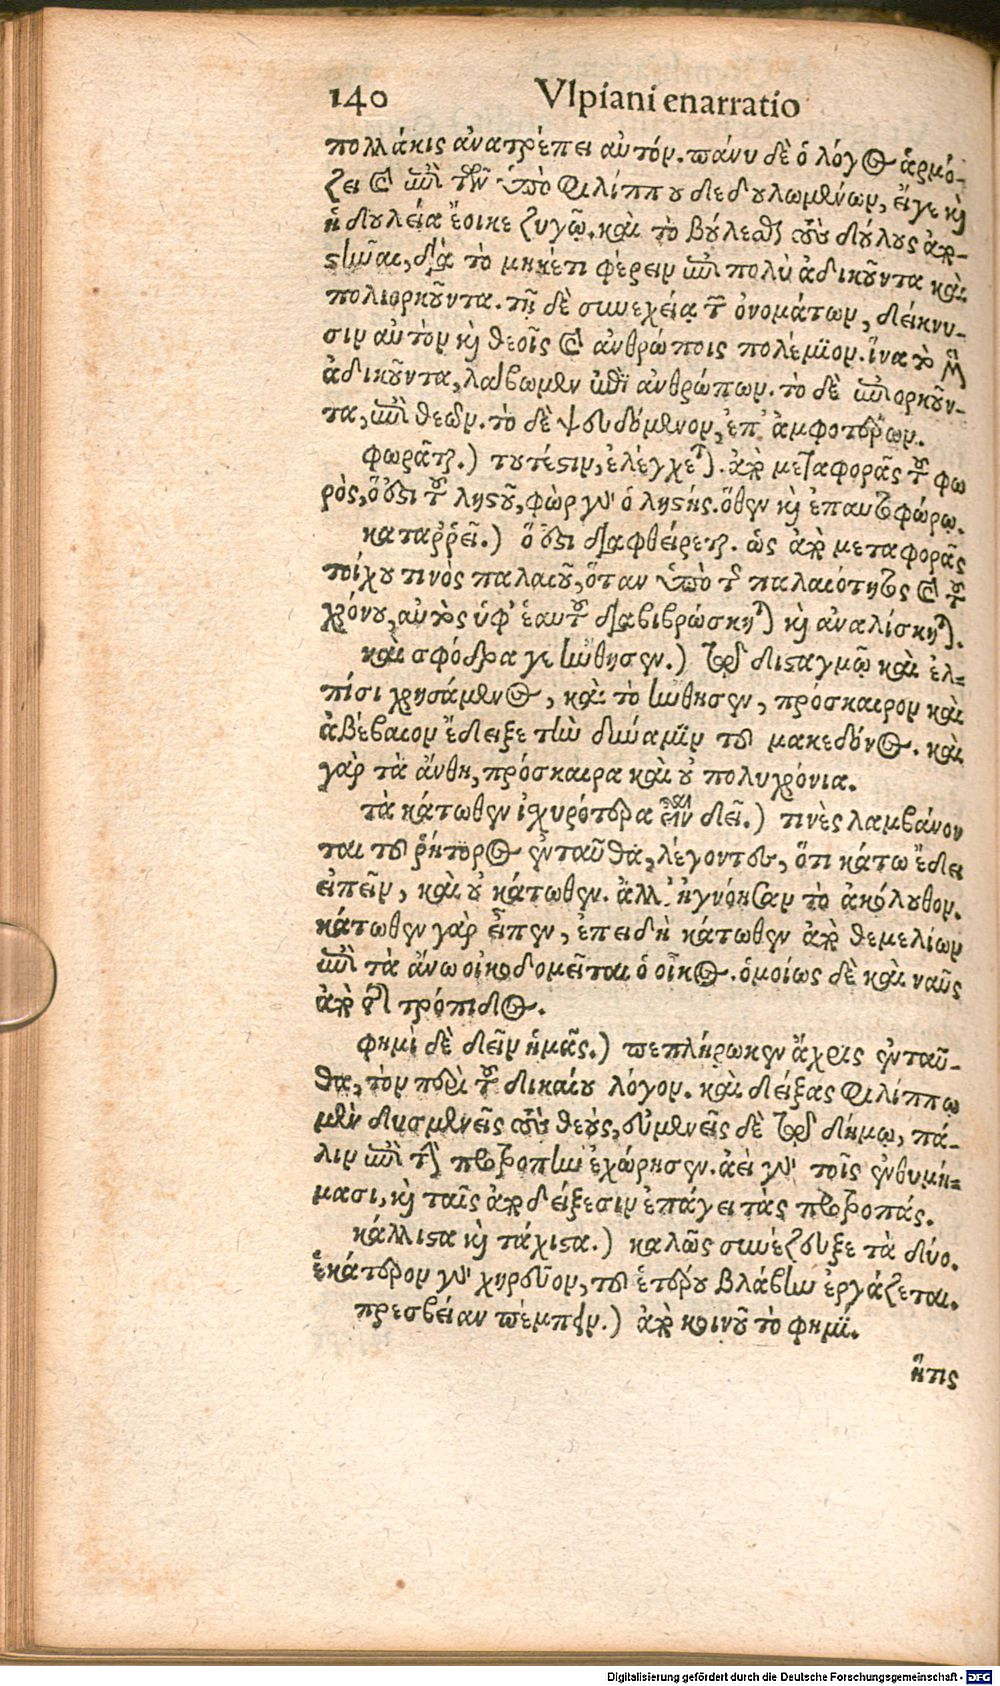 140 Vlpiani enarratio
πολλάκις ἀνατρέπει αὐτόν. πάνυ δὲ ὁ λόγος ἁρμό-
ζει ἐπὶ τῶν ὑπὸ Φιλίππου δεδουλωμένων, εἴγε καὶ
ἡ δουλεία ἔοικε ζυγῷ. καὶ τὸ βούλεσθαι τοὺς δούλους ἀπ-
στῆναι, διὰ τὸ μηκέτι φέρειν ἐπὶ πολὺ ἀδικοῦντα καὶ
πολιορκοῦντα. τῇ δὲ συνεχείᾳ τῶν ὀνομάτων, δείκνυ-
σιν αὐτὸν καὶ θεοῖς καὶ ἀνθρώποις πολέμιον. ἵνα τὸ μὲν
ἀδικοῦντα, λάβωμεν ἐπὶ ἀνθρώπων. τὸ δὲ ἐπιορκοῦν-
τα, ἐπὶ θεῶν. τὸ δὲ ψευδόμενον, ἐπ' ἀμφοτέρων.
φωρᾶται.) τουτέστιν, ἐλέγχεται. ἀπὸ μεταφορᾶς τοῦ φω
ρὸς, ὅ ἐστι τοῦ λῃστοῦ, φὼρ γὰρ ὁ λῃστής. ὅθεν καὶ ἐπαυτοφώρῳ.
καταῤῥεῖ.) ὅ ἐστι διαφθείρεται. ὡς ἀπὸ μεταφορᾶς
τοίχου τινὸς παλαιοῦ, ὅταν ὑπὸ τῆς παλαιότητος καὶ τοῦ
χρόνου, αὐτὸς ὑφ' ἑαυτοῦ διαβιβρώσκηται καὶ ἀναλίσκηται.
καὶ σφόδρα γε ἤνθησεν.) τῷ δισταγμῷ καὶ ἐλ-
πίσι χρησάμενος, καὶ τὸ ἤνθησεν, πρόσκαιρον καὶ
ἀβέβαιον ἔδειξε τὴν δύναμιν τοῦ μακεδόνος. καὶ
γὰρ τὰ ἄνθη, πρόσκαιρα καὶ οὐ πολυχρόνια.
τὰ κάτωθεν ἰσχυρότερα εἶναι δεῖ.) τινὲς λαμβάνον
ται τοῦ ῥήτορος ἐνταῦθα, λέγοντες, ὅτι κάτω ἔδει
εἰπεῖν, καὶ οὐ κάτωθεν. ἀλλ' ἠγνόησαν τὸ ἀκόλουθον.
κάτωθεν γὰρ εἶπεν, ἐπειδὴ κάτωθεν ἀπὸ θεμελίων
ἐπὶ τὰ ἄνω οἰκοδομεῖται ὁ οἶκος. ὁμοίως δὲ καὶ ναῦς
ἀπὸ τῆς τρόπιδος.
φημὶ δὲ δεῖν ἡμᾶς.) πεπλήρωκεν ἄχρις ἐνταῦ-
θα, τὸν περὶ τοῦ δικαίου λόγον. καὶ δείξας Φιλίππῳ
μὲν δυσμενεῖς τοὺς θεούς, εὐμενεῖς δὲ τῷ δήμῳ, πά-
λιν ἐπὶ τὴν προτροπὴν ἐχώρησεν. ἀεὶ γὰρ τοῖς ἐνθυμή-
μασι, καὶ ταῖς ἀποδείξεσιν ἐπάγει τὰς προτροπάς.
κάλλιστα καὶ τάχιστα.) καλῶς συνέζευξε τὰ δύο.
ἑκάτερον γὰρ χηρεῦον, τοῦ ἑτέρου βλάβην ἐργάζεται.
πρεσβείαν πέμπειν.) ἀπὸ κοινοῦ τὸ φημί.
ἥτις
Digitalisierung gefördert durch die Deutsche Forschungsgemeinschaft - DFG